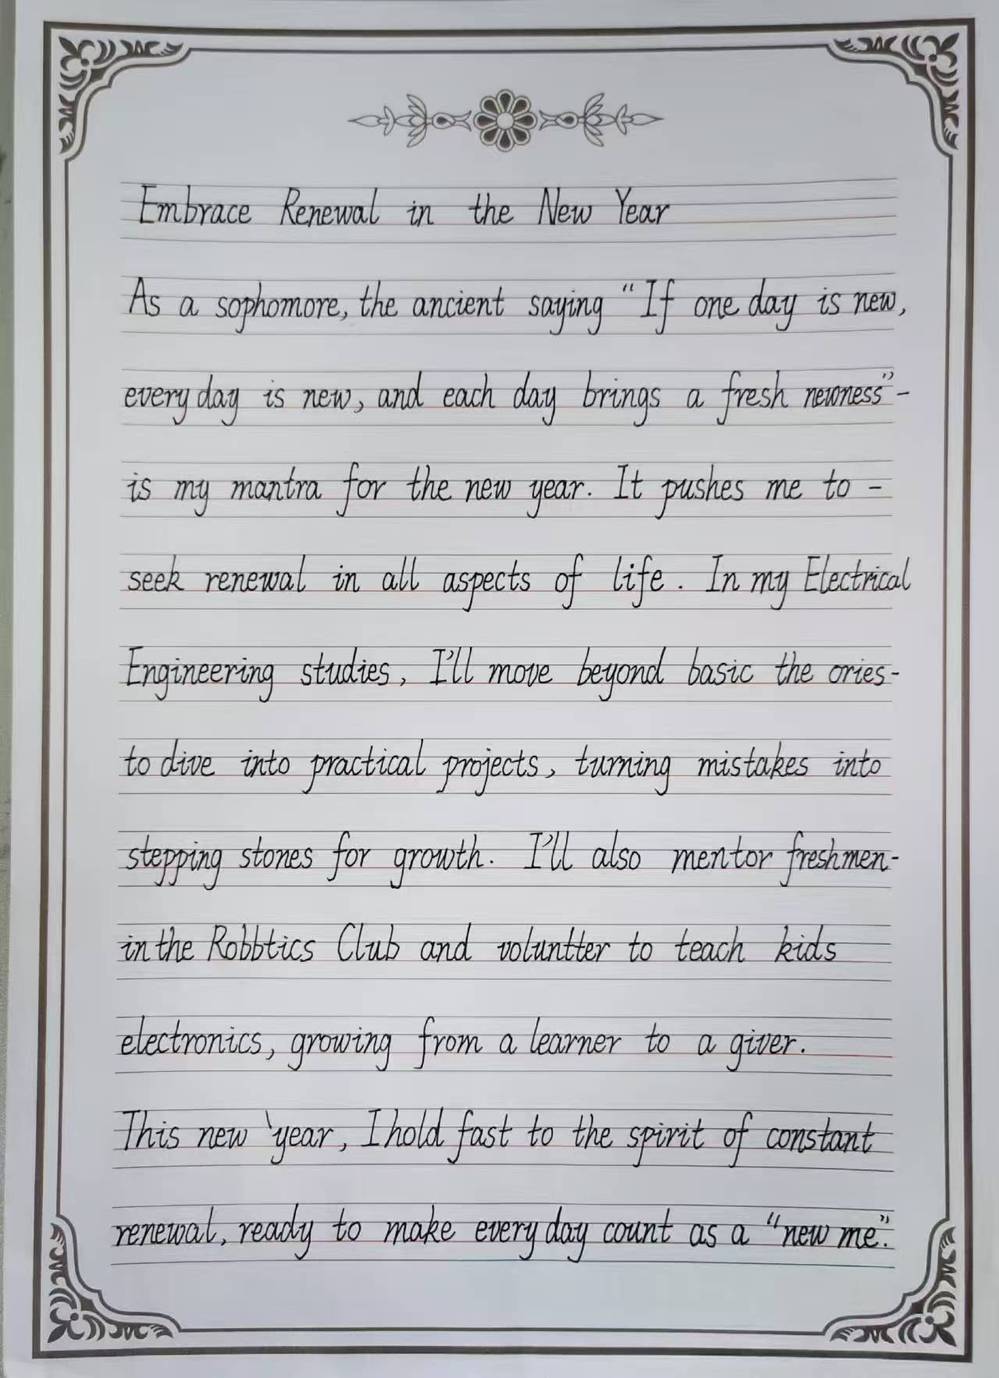 Embrace Renewal in the New Year
As a sophomore, the ancient saying “If one day is new,
every day is new, and each day brings a fresh newness”-
is my mantra for the new year. It pushes me to -
seek renewal in all aspects of life. In my Electrical
Engineering studies, I'll move beyond basic the ories-
to dive into practical projects, turning mistakes into
stepping stones for growth. I'll also mentor freshmen-
in the Robbtics Club and voluntter to teach kids
electronics, growing from a learner to a giver.
This new year, I hold fast to the spirit of constant
renewal, ready to make every day count as a “new me”.